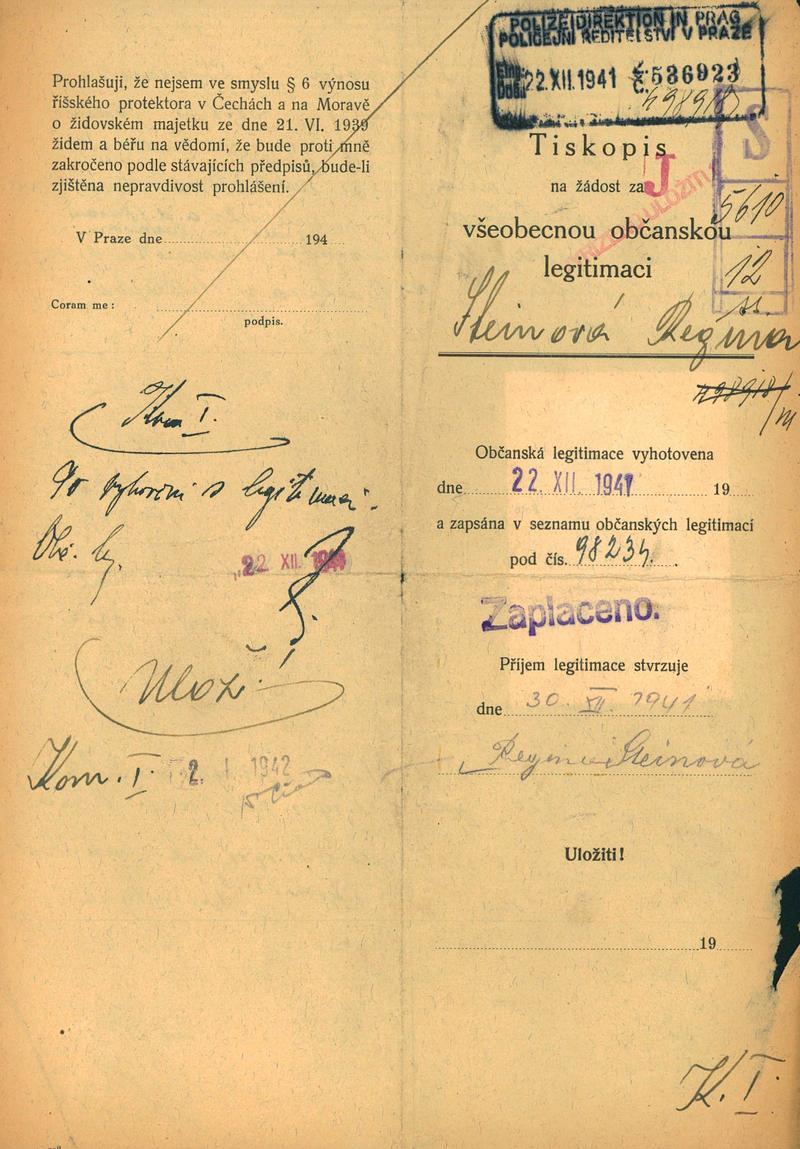 Prohlašuji, že nejsem ve smyslu § 6 výnosu
říšského protektora v Čechách a na Moravě
o židovském majetku ze dne 21. VI. 1939
židem a béřu na vědomí, že bude proti mně
zakročeno podle stávajících předpisů, bude-li
zjištěna nepravdivost prohlášení.
V Praze dne 194
Coram me :
podpis.
Kom I.
s legitimací.
22 XII. 1941
Ulož!
Kom. I. 2. I 1942
POLIZEIDIREKTION IN PRAG
POLICEJNÍ ŘEDITELSTVÍ V PRAZE
22.XII.1941 č. 536923
498918
S
Tiskopis
na žádost za
J
5610
všeobecnou občanskou
legitimaci
12
Steinová Regina
498918/
Občanská legitimace vyhotovena
dne 22. XII. 1941 19
a zapsána v seznamu občanských legitimací
pod čís. 98234.
Zaplaceno.
Příjem legitimace stvrzuje
dne 30. XII. 1941
Regina Steinová
Uložiti!
19
K. I.